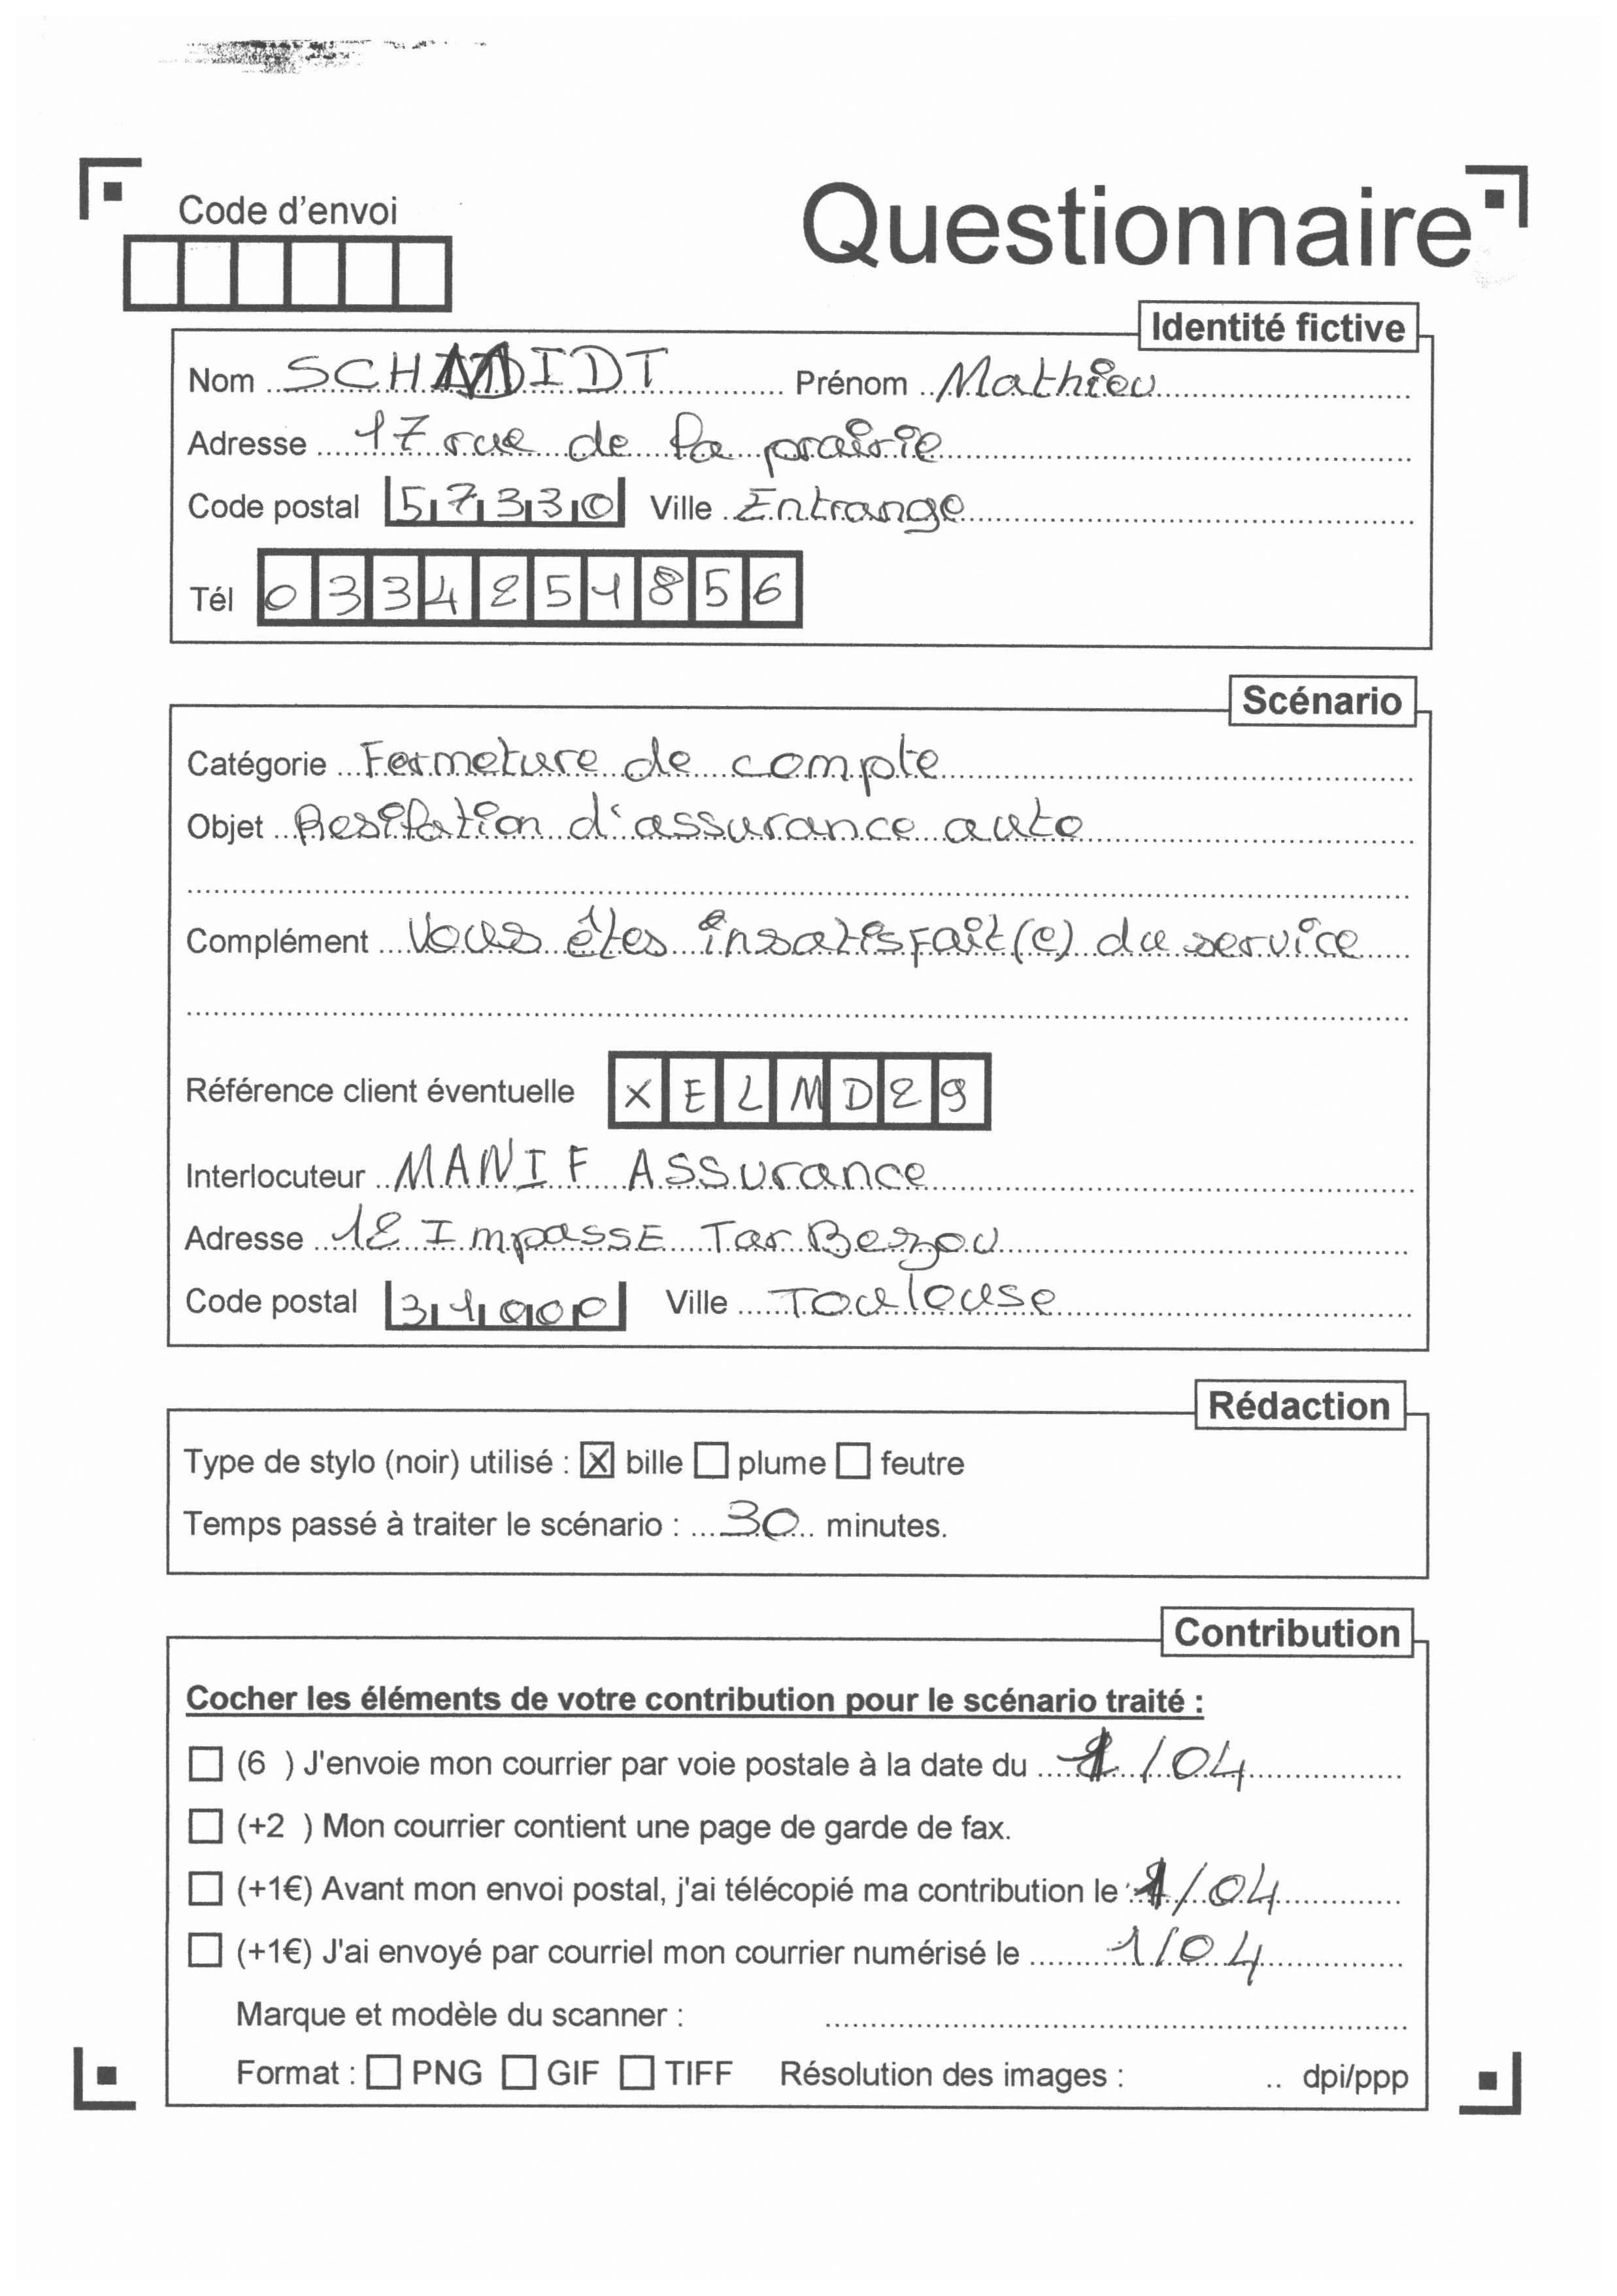 Code d'envoi
Questionnaire
Identité fictive
Nom SCHMIDT Prénom Mathieu
Adresse 17 rue de la prairie
Code postal 57330 Ville Entrange
Tél 0334251856
Scénario
Catégorie Fermeture de compte
Objet Resilation d'assurance auto
Complément Vous êtes insatisfait(e) du service
Référence client éventuelle XELMD29
Interlocuteur MANIF ASSurance
Adresse 12 ImpassE Tar Bezou
Code postal 31000 Ville Toulouse
Rédaction
Type de stylo (noir) utilisé : X bille plume feutre
Temps passé à traiter le scénario : 30 minutes.
Contribution
Cocher les éléments de votre contribution pour le scénario traité :
(6 ) J'envoie mon courrier par voie postale à la date du 1/04
(+2 ) Mon courrier contient une page de garde de fax.
(+1€) Avant mon envoi postal, j'ai télécopié ma contribution le 1/04
(+1€) J'ai envoyé par courriel mon courrier numérisé le 1/04
Marque et modèle du scanner :
Format : PNG GIF TIFF Résolution des images : .. dpi/ppp